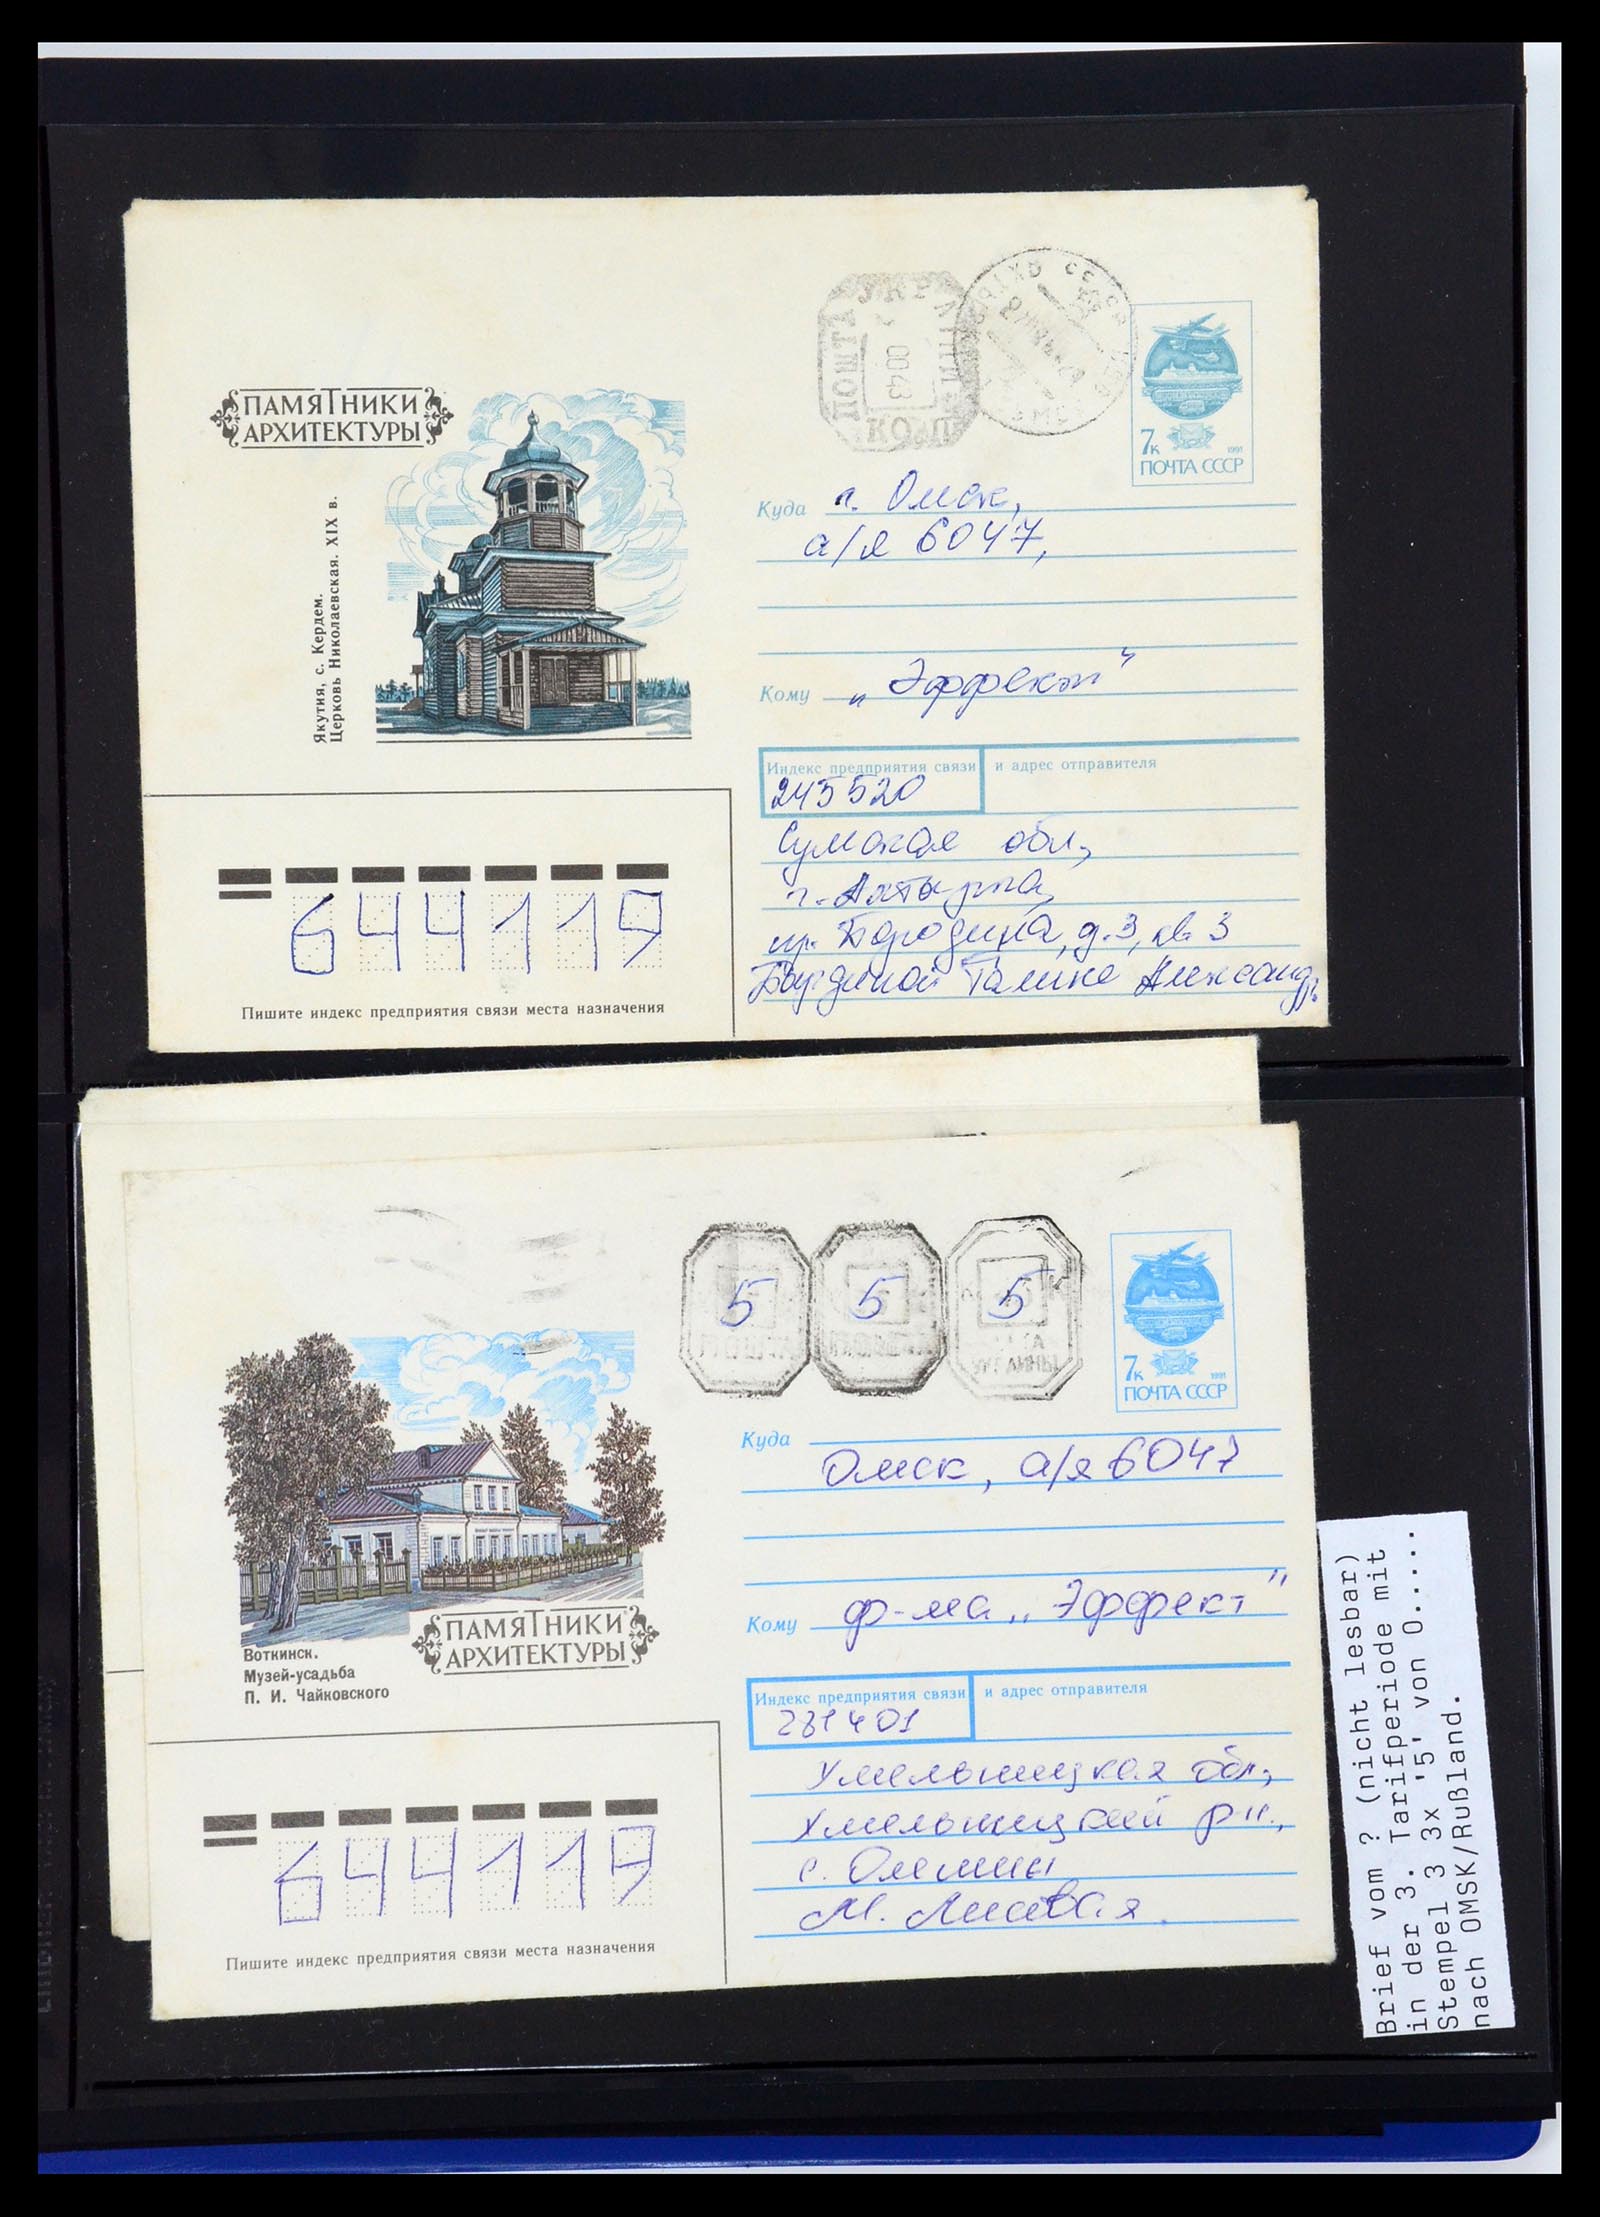 ПАМЯТНИКИ
АРХИТЕКТУРЫ
Якутия, с. Кердем.
Церковь Николаевская. XIX в.
ПОШТА УКРАЇНИ
00-43
КОП
СССР
7к 1991
ПОЧТА СССР
Куда г. Омск,
а/я 6047,
Кому "Эффект"
Индекс предприятия связи и адрес отправителя
245520
Сумская обл,
г. Ахтырка,
пр. Бородина, д. 3, кв. 3
Галине Александр.
644119
Пишите индекс предприятия связи места назначения
5 5 5
УКРАИНЫ
7к 1991
ПОЧТА СССР
Куда
Омск, а/я 6047
Кому ф-ма "Эффект"
Воткинск.
Музей-усадьба
П. И. Чайковского
ПАМЯТНИКИ
АРХИТЕКТУРЫ
Индекс предприятия связи и адрес отправителя
281401
Хмельницкая обл,
Хмельницкий р-н,
с. Олешин
М.
644119
Пишите индекс предприятия связи места назначения
Brief vom ? (nicht lesbar)
in der 3. Tarifperiode mit
Stempel 3 3x '5' von O.....
nach OMSK/Rußland.